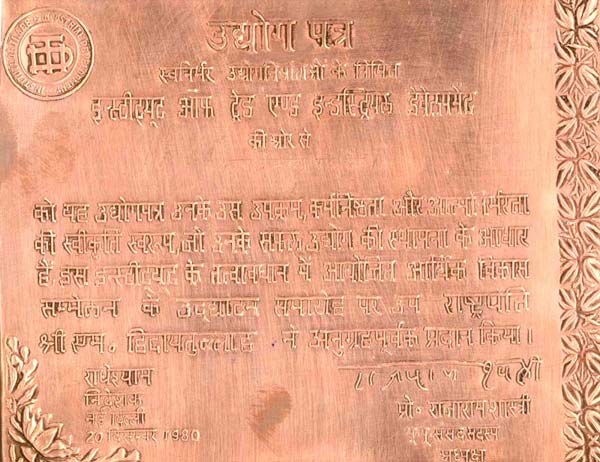 उद्योग पत्र
स्वनिर्भर उद्योगनिर्माताओं के निमित्त
इन्स्टीट्यूट ऑफ ट्रेड एण्ड इन्डस्ट्रियल डेवेलपमेंट
की ओर से
को यह उद्योगपत्र उनके उस उपक्रम, कर्मनिष्ठता और आत्मनिर्भरता
की स्वीकृति स्वरूप, जो उनके सफल उद्योग की स्थापना के आधार
हैं इस इन्स्टीट्यूट के तत्वावधान में आयोजित आर्थिक विकास
सम्मेलन के उद्घाटन समारोह पर उप राष्ट्रपति
श्री एम. हिदायतुल्लाह ने अनुग्रहपूर्वक प्रदान किया।
राधेश्याम
निदेशक
नई दिल्ली
20 दिसम्बर 1980
प्रो. राजाराम शास्त्री
भूतपूर्व संसद सदस्य
अध्यक्ष